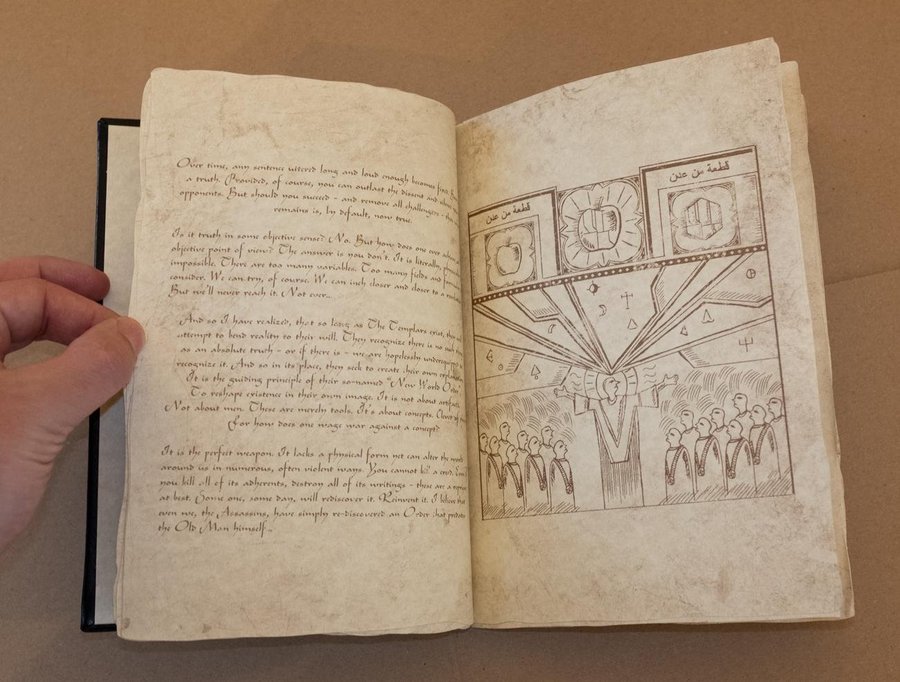 Over time, any sentence uttered long and loud enough becomes fixed.
a truth. Provided, of course, you can outlast the dissent and silence
opponents. But should you succeed - and remove all challengers -
remains is, by default, now true.
Is it truth in some objective sense? No. But how does one ever
objective point of view? The answer is you don't. It is literally,
impossible. There are too many variables. Too many fields and formulae
consider. We can try, of course. We can inch closer and closer to a
But we'll never reach it. Not ever...
And so I have realized, that so long as The Templars exist, they
attempt to bend reality to their will. They recognize there is no such
as an absolute truth - or if there is - we are hopelessly
recognize it. And so in its place, they seek to create their own
It is the guiding principle of their so-named "New World Order"
To reshape existence in their own image. It is not about artifacts.
Not about men. These are merely tools. It's about concepts. Clever
For how does one wage war against a concept?
It is the perfect weapon. It lacks a physical form yet can alter the
around us in numerous, often violent ways. You cannot kill a creed.
you kill all of its adherents, destroy all of its writings - these are a
at best. Some one, some day, will rediscover it. Reinvent it. I believe that
even we, the Assassins, have simply re-discovered an Order that predates
the Old Man himself...
قطعة من عدن
قطعة من عدن